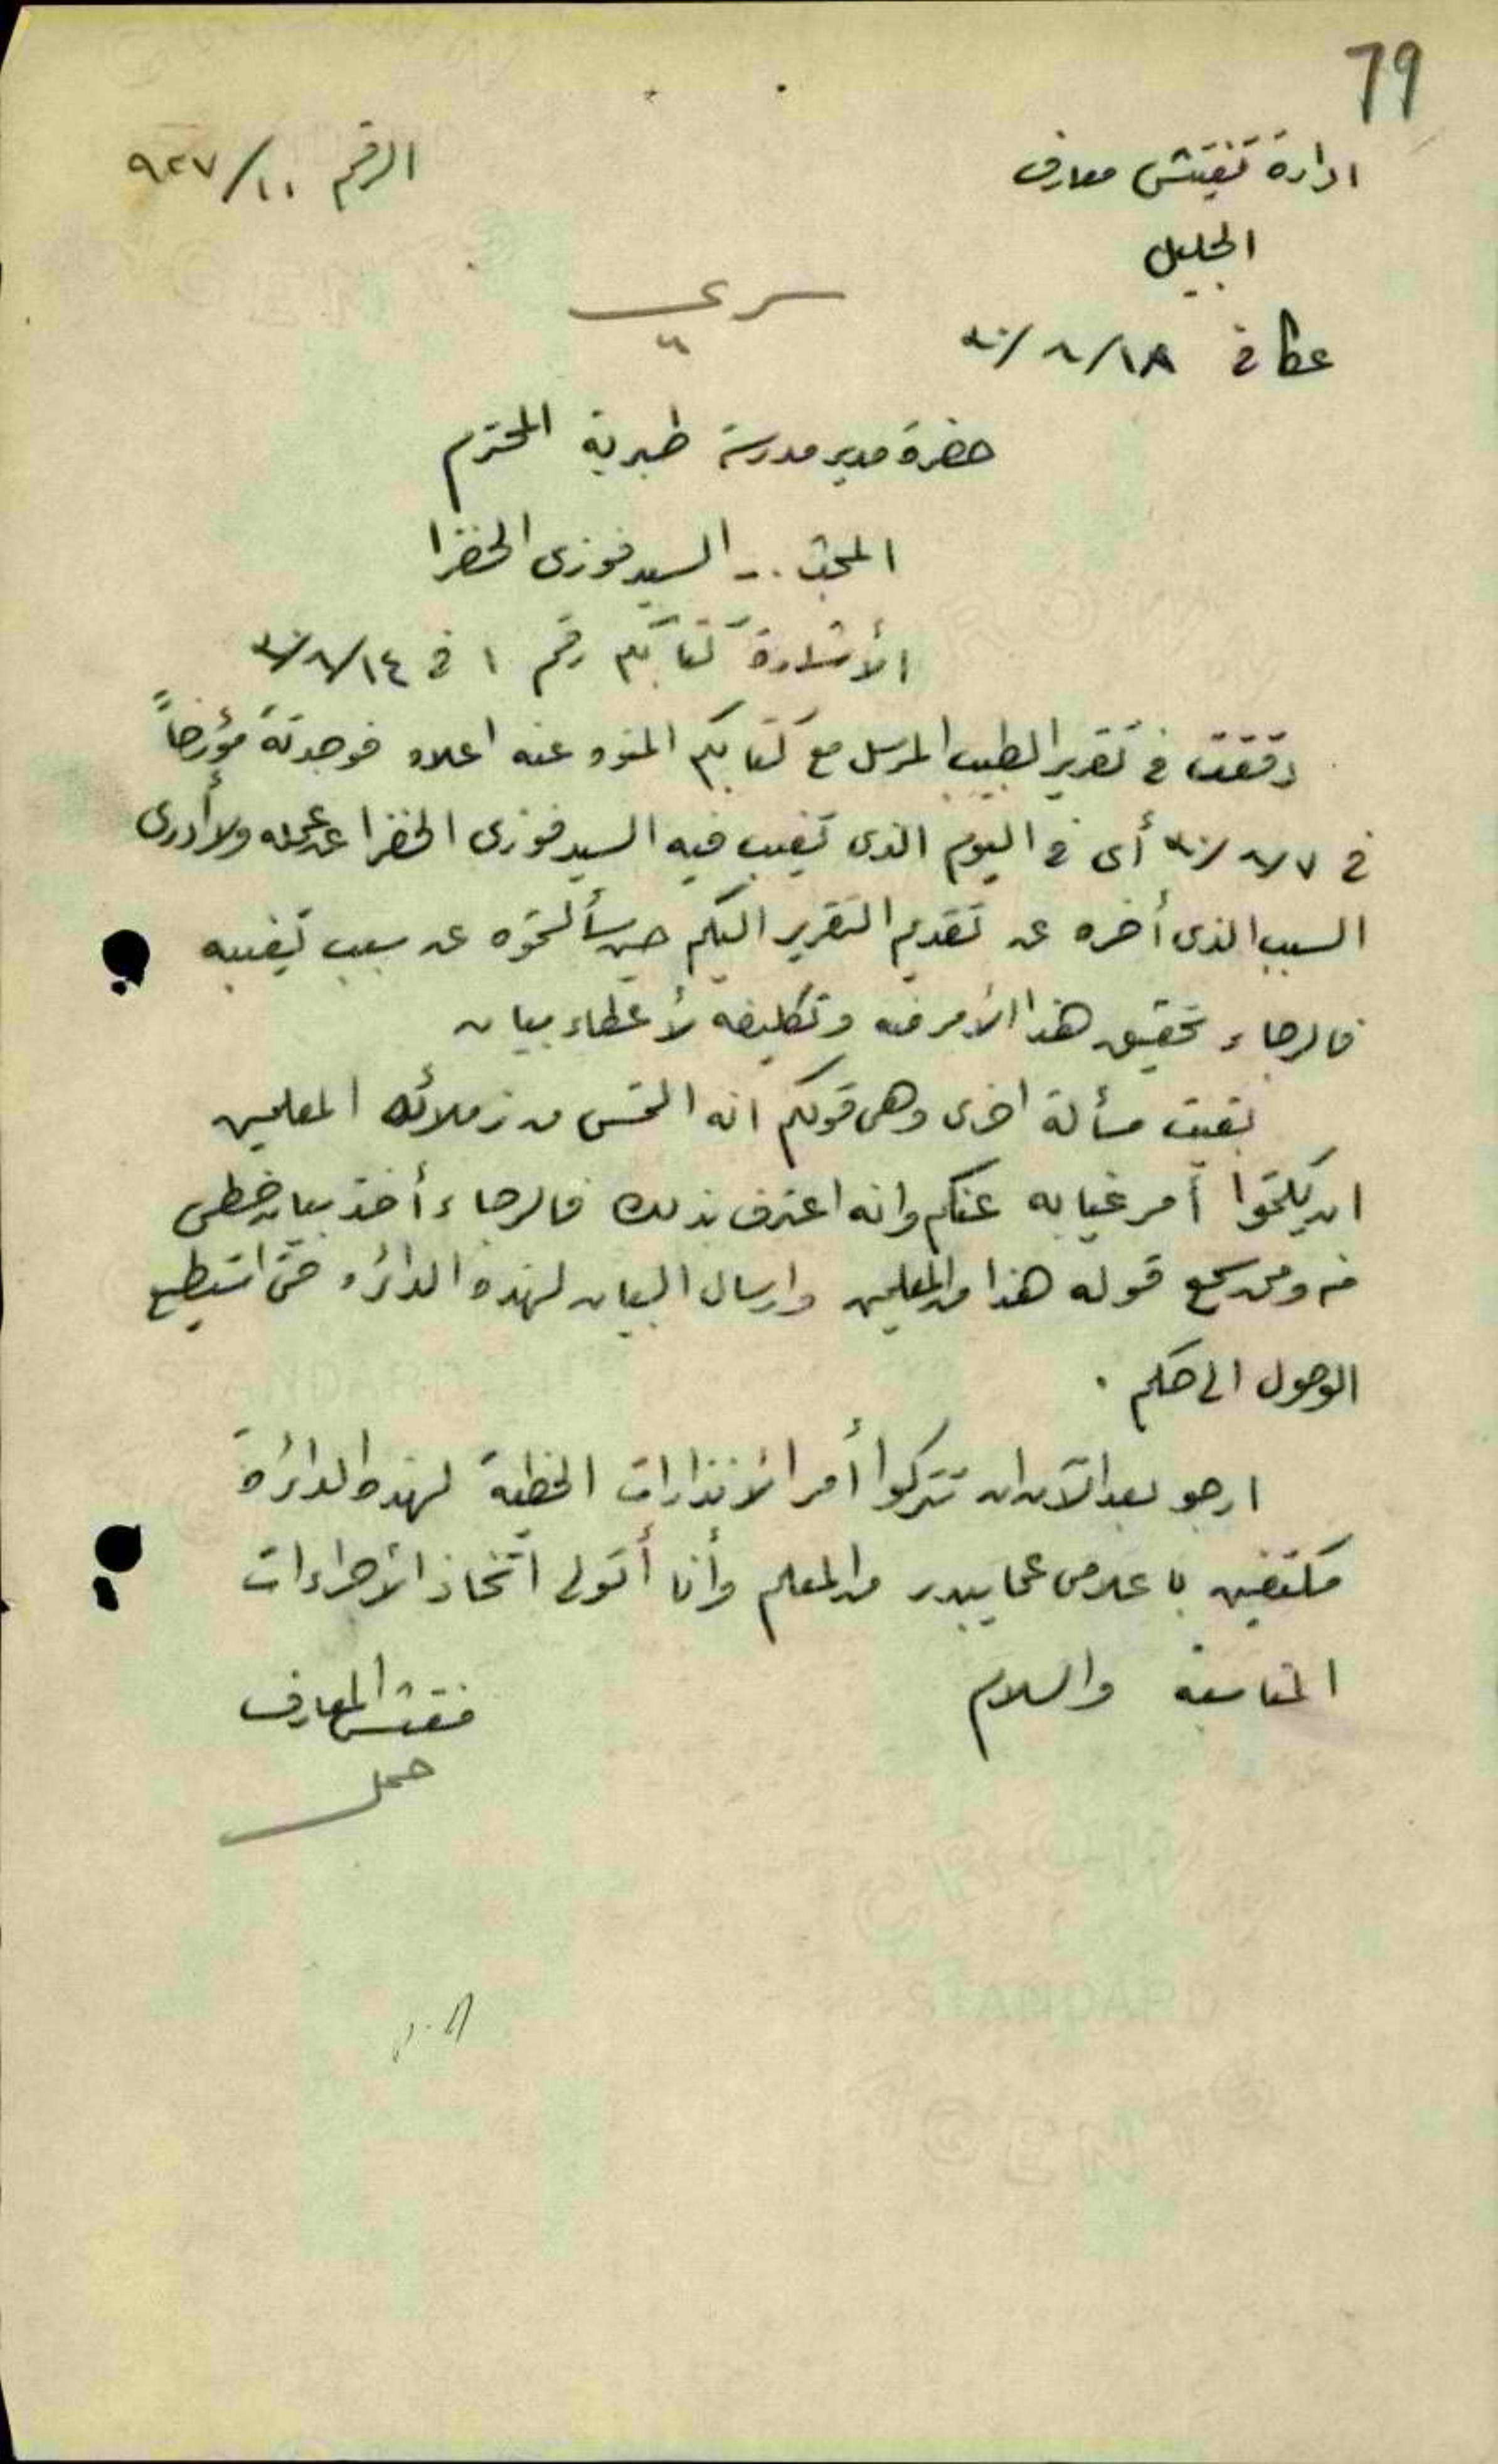 79
ادارة تفتيش معارف
الرقم ١٠/٩٢٧
الجليل
سري
عكا في ١٨/٨/٣٠
حضرة مدير مدرسة طبرية المحترم
المبحث .- السيد فوزى الخضرا
الأشارة كتابكم رقم ١ في ١٤/٨/٣٠
دققت في تقرير الطبيب المرسل مع كتابكم المنوه عنه اعلاه فوجدته مؤرخاً
في ٧/٨/٣٠ أى في اليوم الذى تغيب فيه السيد فوزى الخضرا عن عمله ولا أدرى
السبب الذى أخره عن تقديم التقرير اليكم حين سألتموه عن سبب تغيبه
فالرجاء تحقيق هذا الأمر منه وتكليفه لأعطاء بيان
بقيت مسألة اخرى وهى قولكم انه التمس من زملائه المعلمين
ان يكتموا أمر غيابه عنكم وانه اعترف بذلك فالرجاء أخذ بيان خطى
منه وممن سمع قوله هذا من المعلمين وارسال البيان لهذه الدائره حتى استطيع
الوصول الى حكم .
ارجو بعد الآن ان تتركوا أمر الأنذارات الخطية لهذه الدائرة
مكتفين باعلامى عما يبدر من المعلم وأنا أتولى اتخاذ الأجراءات
المناسبة والسلام
مفتش المعارف